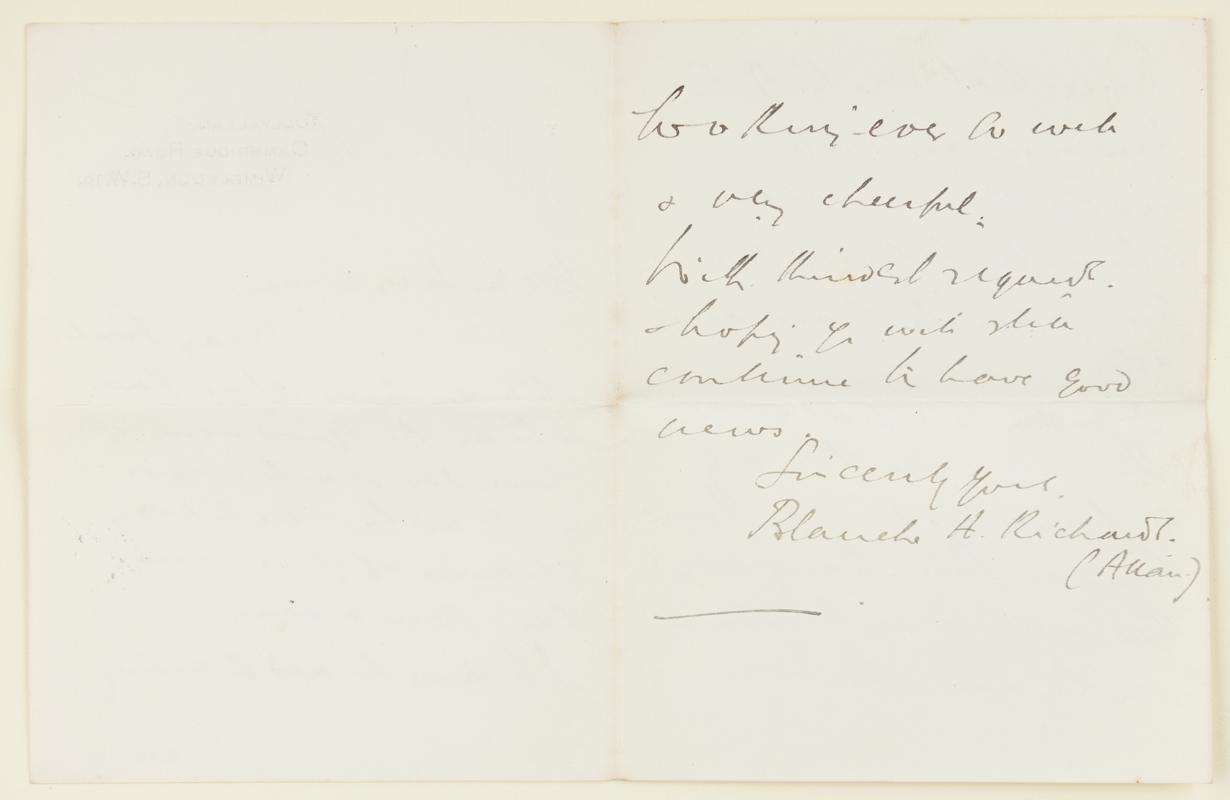 looking ever so well
& very cheerful.
With kindest regards.
& hoping yr will still
continue to have good
news.
Sincerely Yours.
Blanche H. Richards.
(Allan)
Cambridge Road.
Wimbledon, S.W.19.